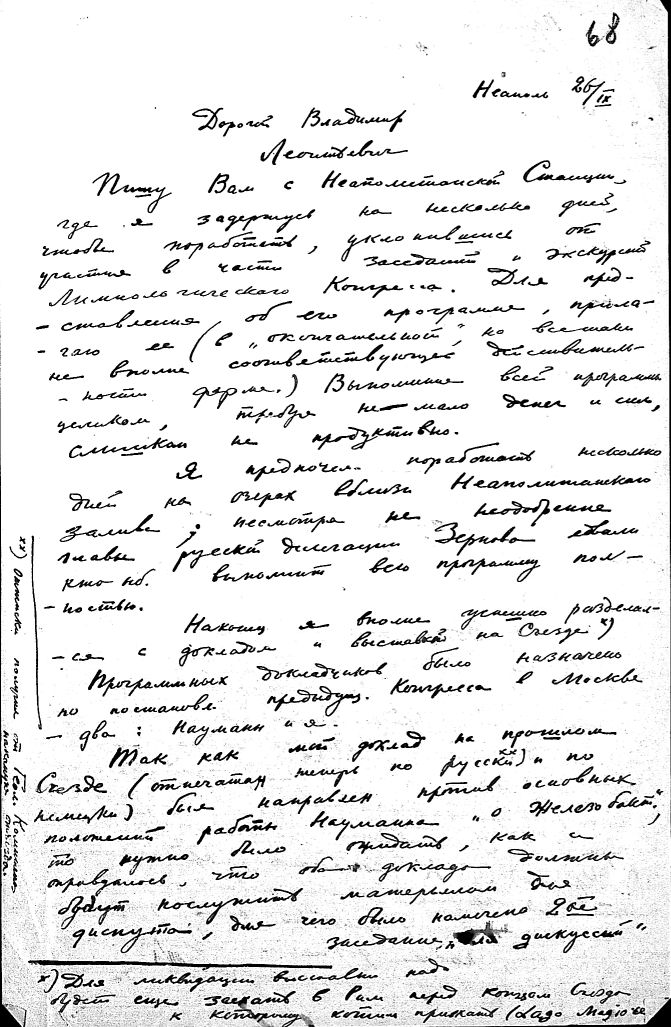 68
Неаполь 26/IX
Дорогой Владимир
Леонтьевич
Пишу Вам с Неаполитанской Станции,
где я задержусь на несколько дней,
чтобы поработать, уклонившись от
участия в части заседаний и экскурсий
Лимнологического Конгресса. Для пред-
-ставления об его программе, прила-
-гаю ее (в „окончательной", но всетаки
не вполне соответствующей действитель-
-ности форме.) Выполнение всей программы
целиком, требуя не мало денег и сил,
слишком не продуктивно.
Я предпочел поработать несколько
дней на озерах вблизи Неаполитанского
залива; несмотря на неодобрение
главы русской делегации Зернова едвали
кто нб. выполнит всю программу пол-
-ностью.
Наконец я вполне успешно разделал-
-ся с докладом и выставкой на Съезде x)
Программных докладчиков было назначено
по постановл. предыдущ. Конгресса в Москве
- два: Науманн и я.
Так как мой доклад на прошлом
Съезде (отпечатан теперь по русски xx) и по
немецки) был направлен против основных
положений работы Науманна „о Железобакт.",
то нужно было ожидать, как и
оправдалось, что оба доклада должны
будут послужить материалом для
диспута, для чего было намечено 2ое
заседание „для дискуссий"
x) Для ликвидации выставки надо
будет еще заехать в Рим перед концом Съезда
к которому хотим приехать (Lago Magiore
xx) Оттиски получил от Геол. Комитета
накануне отъезда.